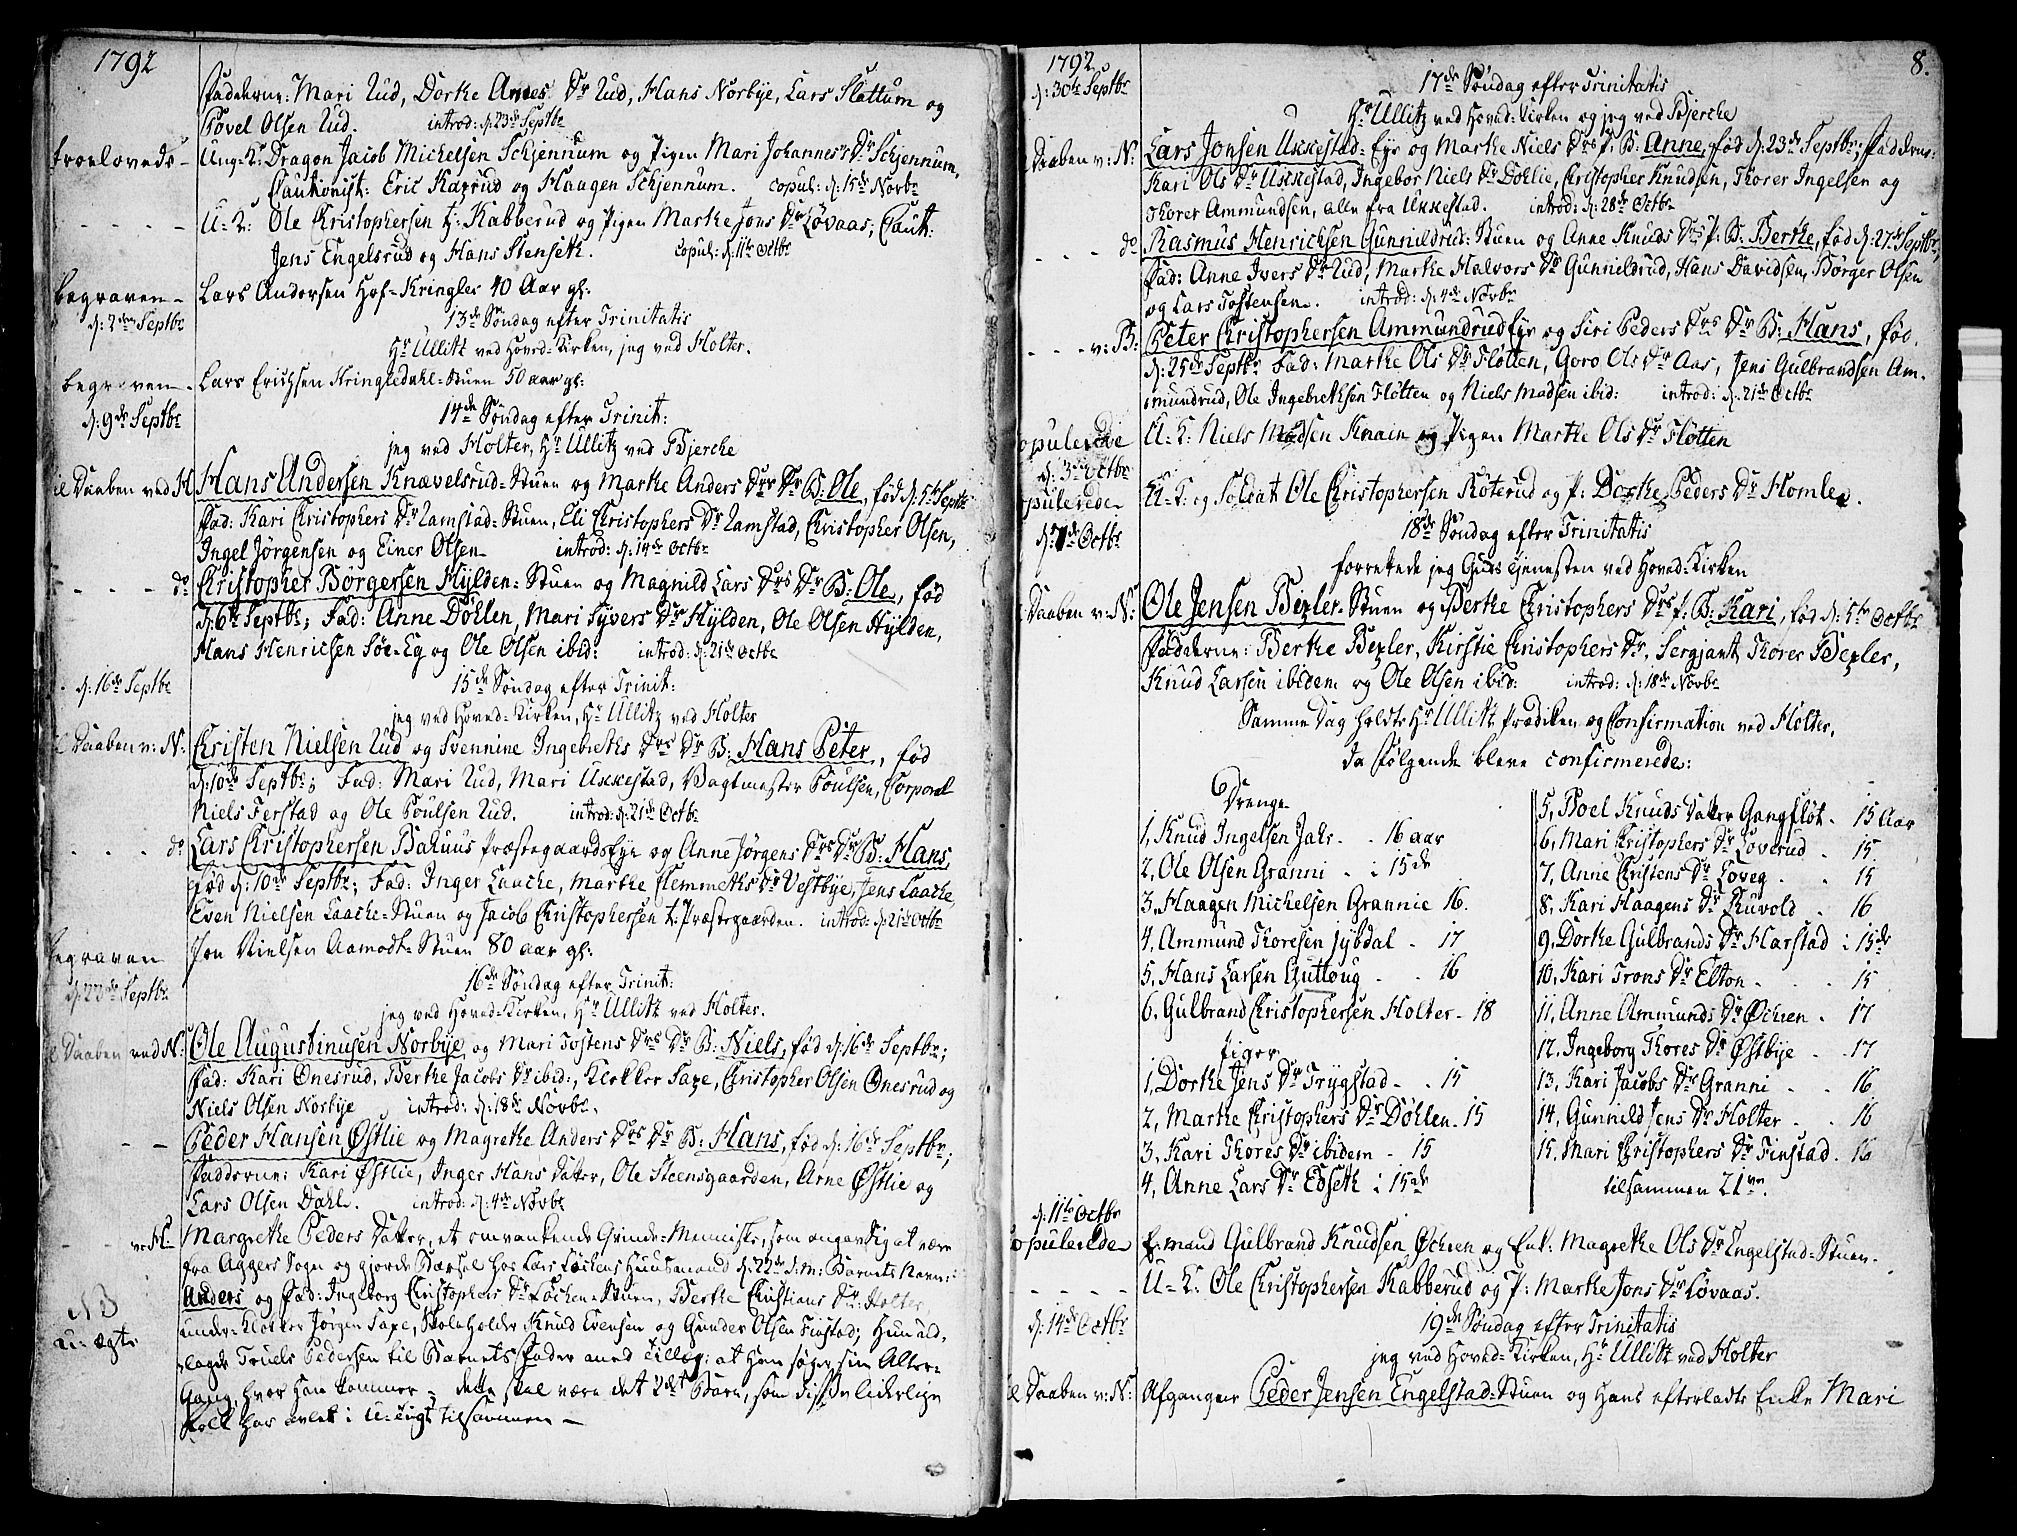 1792
Fadderne: Mari Lud, Dorke Arnes Dr Lud, Hans Norbye, Lars Slattum og
Povel Olsen Lud. introd: d: 23de Septbr
troelovede - Ung-K: Dragon Jacob Michelsen Schjennum og Pigen Mari Johannes Dr Schjennum,
Cautionist: Eric Kaxrud og Haagen Schjennum. copul: d: 15de Novbr
- - - - U-K: Ole Christophersen t: Kabberud og Pigen Marthe Jons Dr Løvaas; Caut:
Jens Engelsrud og Hans Stenseth. copul: d: 11te Octbr
begraven - Lars Andersen Hof-Kringler 40 Aar gl:
d: 2den Septbr 13de Søndag efter Trinitatis
Hr Ullitz ved Hoved-Kirken, jeg ved Holter.
begraven - Lars Erichsen Kringledahl-Stuen 50 aar gl:
d: 9de Septbr 14de Søndag efter Trinit:
jeg ved Holter, Hr Ullitz ved Bjerche
til Daaben ved H: Hans Andersen Knævelsrud-Stuen og Marthe Anders Drs Dr B: Ole, fød d: 5te Septbr
Fad: Kari Christophers Dr Ramstad-Stuen, Eli Christophers Dr Ramstad, Christopher Olsen,
Ingel Jørgensen og Einer Olsen introd: d: 14de Octbr
- - - do Christopher Børgersen Hylden-Stuen og Magnild Lars Drs Dr B: Ole, fød
d: 6te Septbr; Fad: Anne Døhlen, Mari Syvers Dr Hylden, Ole Olsen Hylden,
Hans Henricsen Sør-Eg og Ole Olsen ibid: introd: d: 21de Octbr
d: 16de Septbr 15de Søndag efter Trinit:
jeg ved Hoved-Kirken, Hr Ullitz ved Holter
til Daaben v: N: Christen Nielsen Lud og Svennine Ingebreths Drs Dr B: Hans Peter, fød
d: 10de Septbr; Fad: Mari Lud, Mari Ukkestad, Vagtmester Poulsen, Corporal
Niels Ferstad og Ole Poulsen Lud. introd: d: 21de Octbr
- - - do Lars Christophersen Bakuus Præstegaards Eje og Anne Jørgens Drs Dr B: Hans,
fød d: 10de Septbr; Fad: Inger Laache, Marthe Clemmeths Dr Vestbye, Jens Laache
Even Nielsen Laache-Stuen og Jacob Christophersen t: Præstegaarden. introd: d: 21de Octbr
begraven Jon Nielsen Aamodt-Stuen 80 aar gl:
d: 23de Septbr 16de Søndag efter Trinit:
jeg ved Hoved-Kirken, Hr Ullitz ved Holter.
til Daaben ved N: Ole Augustinusen Norbye, og Mari Tostens Drs Dr B: Niels, fød d: 16de Septbr;
Fad: Kari Onesrud, Berthe Jacobs Dr ibid:, Klokker Saxe, Christopher Olsen Onesrud og
Niels Olsen Norbye introd: d: 18de Novbr.
- - Peder Hansen Østlie og Magrethe Anders Drs Dr B: Hans, fød d: 16de Septbr;
Fadderne: Kari Østlie, Inger Hans Datter, Ole Steensgaarden, Arne Østlie og
Lars Olsen Dahl. introd: d: 4de Novbr
- - v: H: Margrethe Peders Datter, et omvankende Qvinde-Menniske, som angav sig at være
fra Aggers Sogn og gjorde Barsel hos Lars Løckens Huusmand d: 22de s: m: Barnets Navn:
Anders og Fad: Ingeborg Christophers Dr Løchen-Stuen, Berthe Christians Dr Holter
NB under-Klokker Jørgen Saxe, Skoleholder Knud Evensen og Gunder Olsen Finstad; Hun ud-
u: ægte lagde Truels Pedersen til Barnets Fader med Tillæg: at han søger sin Alter-
Gang, hvor han kommer; dette skal være det 2det Barn, som disse liderlige
Folk har avlet i U-tugt tilsammen -
1792 8.
d: 30te Septbr 17de Søndag efter Trinitatis
Hr Ullitz ved Hoved-Kirken og jeg ved Bjerche
til Daaben v: N: Lars Jonsen Ukkestad-Eje og Marthe Niels Drs P: B: Anne, fød d: 23de Septbr; Fadderne:
Kari Ols Dr Ukkestad, Ingebor Niels Dr Døhlie, Christopher Knudsen, Thorer Ingelsen og
Thorer Ammundsen, alle fra Ukkestad. introd: d: 28de Octbr
- - - do Rasmus Henrichsen Gunnildrud-Stuen og Anne Knuds Drs P: B: Berthe, fød d: 27de Septbr;
Fad: Anne Ivers Dr Rud, Marthe Halvors Dr Gunnildrud, Hans Davidsen, Børger Olsen
og Lars Tostensen. introd: d: 4de Novbr
- - - v: B: Peter Christophersen Ammundrud Eje og Siri Peders Drs Dr B: Hans, fød
d: 25de Septbr Fad: Marthe Ols Dr Fløtten, Goro Ols Dr Aas, Jens Gulbrandsen Am-
mundrud, Ole Ingebrethsen Fløtten og Niels Madsen ibid: introd: d: 21de Octbr
copulerede U-K: Niels Madsen Knain og Pigen Marthe Ols Dr Fløtten
d: 3de Octbr
copulerede U-K: og Soldat Ole Christophersen Koterud og P: Dorthe Peders Dr Homle.
d: 7de Octbr 18de Søndag efter Trinitatis
forrettede jeg Guds Tjenesten ved Hoved-Kirken
til Daaben v: N: Ole Jensen Bexler-Stuen og Berthe Christophers Drs P: B: Kari, fød d: 5te Octbr
Fadderne: Berthe Bexler, Kirstie Christophers Dr, Sergjant Thorer Bexler,
Knud Larsen ibidem og Ole Olsen ibid: introd: d: 18de Novbr
Samme Dag holdte Hr Ullitz Prædiken og Confirmation ved Holter,
da følgende bleve confirmerede:
Drenge
1, Knud Ingelsen Jahr - - 16 aar
2, Ole Olsen Granni - i 15de
3, Haagen Michelsen Grannie 16.
4, Ammund Thoresen Jybdal - 17
5, Hans Larsen Guttoug - - 16
6, Gulbrand Christophersen Holter - 18
Piger
1, Dorthe Jens Dr Trygstad - - 15
2, Marthe Christophers Dr Døhlen - 15
3, Kari Thores Dr ibidem - 15
4, Anne Lars Dr Edseth i 15de
5, Boel Knuds Datter Gangfløt - 15 Aar
6, Mari Christophers Dr Løverud - 15
7, Anne Christens Dr Løveg - - 15
8, Kari Haagens Dr Kuvold - 16
9, Dorthe Gulbrands Dr Harstad i 15de
10, Kari Trons Dr Elton - - - 15
11, Anne Ammunds Dr Øchren - 17
12, Ingeborg Thores Dr Østbye - - 17
13, Kari Jacobs Dr Granni - - 16
14, Gunnild Jens Dr Holter - - 16
15, Mari Christophers Dr Finstad - 16
tilsammen 21ve.
d: 11te Octbr
copulerede Enkemand Gulbrand Knudsen Øchren og Enk: Magrethe Ols Dr Engelstad-Stuen.
- - - - U-K: Ole Christophersen Kabberud og P: Marthe Jons Dr Løvaas.
d: 14de Octbr 19de Søndag efter Trinitatis
jeg ved Hoved-Kirken, Hr Ullitz ved Holter
til Daaben v: N: Afgangne Peder Jensen Engelstad-Stuen og Hans efterladte Enke Mari